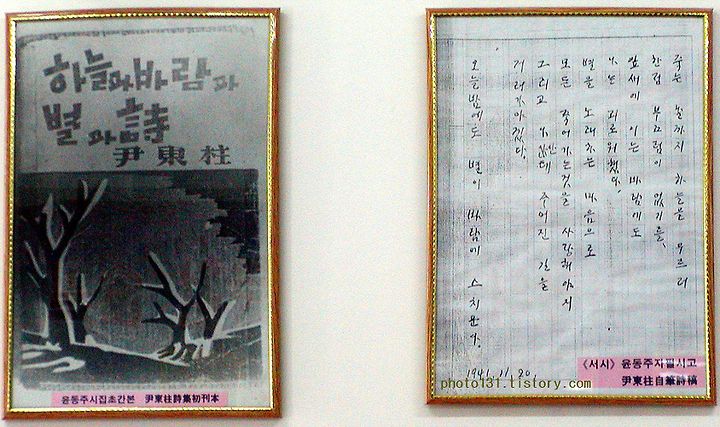 하늘과바람과
별과詩
尹東柱
윤동주시집초간본 尹東柱詩集初刊本
죽는 날까지 하늘을 우르러
한점 부끄럼이 없기를,
잎새에 이는 바람에도
나는 괴로워했다.
별을 노래하는 마음으로
모든 죽어가는것을 사랑해야지
그리고 나안테 주어진 길을
거러가야겠다.
오늘밤에도 별이 바람에 스치운다.
1941.11.20.
《서시》 윤동주자필시고
尹東柱自筆詩稿
photo131.tistory.com